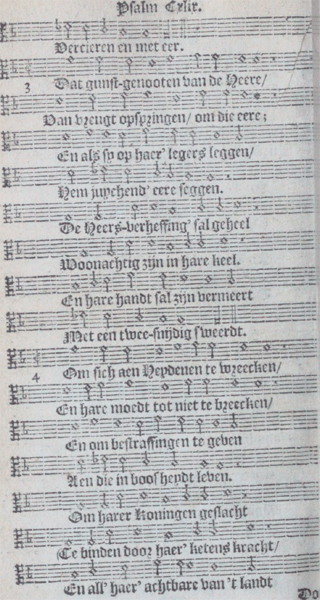 Psalm Cxlix.
Vercieren en met eer.
3 Dat gunst-genooten van de Heere/
Van vreugt opspringen/ om die eere;
En als sy op haer' legers leggen/
Hem juychend' eere seggen.
De Heers-verheffing' sal geheel
Woonachtig zijn in hare keel.
En hare handt sal zijn vermeert
Met een twee-snijdig sweerdt.
4 Om sich aen Heydenen te wreecken/
En hare moedt tot niet te breecken/
En om bestraffingen te geven
Aen die in boosheydt leven.
Om harer Koningen geslacht
Te binden door haer' ketens kracht/
En all' haer' achtbare van 't landt
Do